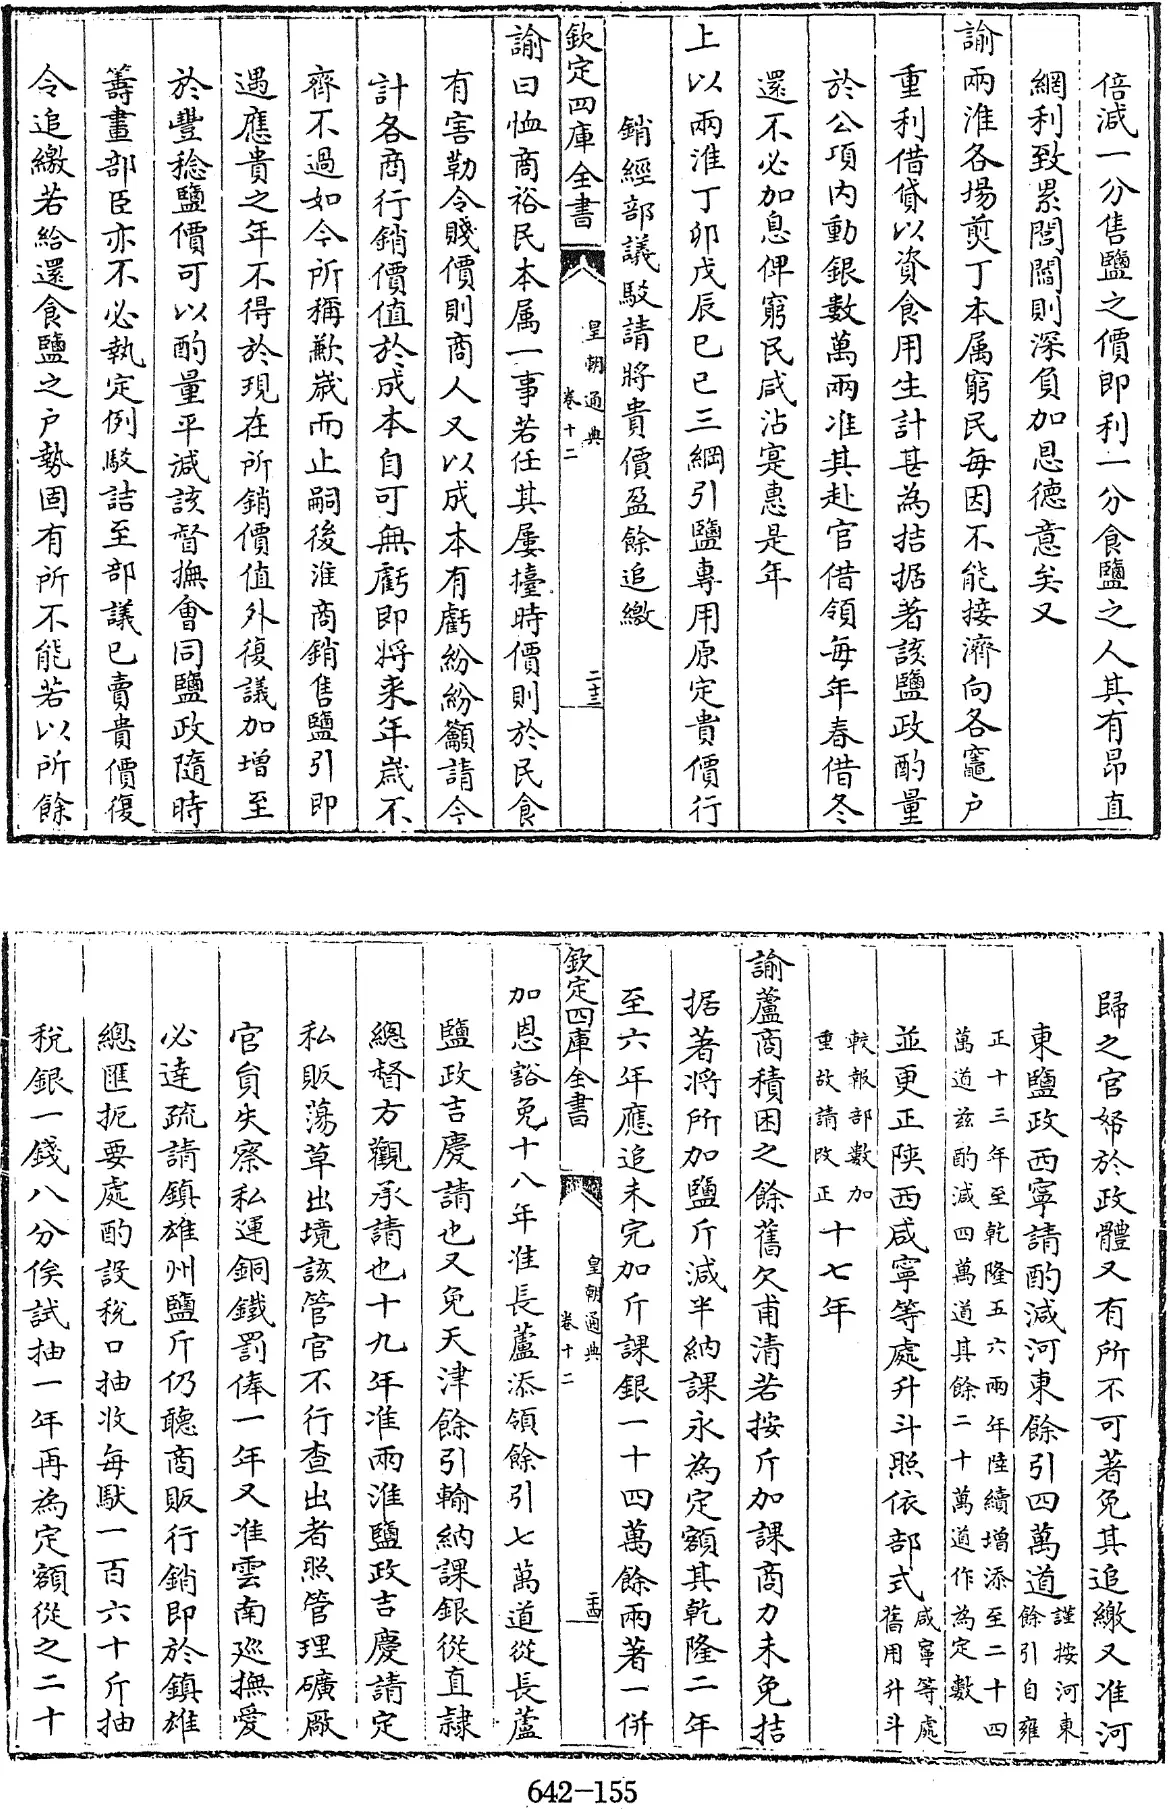 倍減一分售鹽之價即利一分食鹽之人其有昂直
網利致累閭閻則深負加恩德意矣又
諭兩淮各場煎丁本属窮民每因不能接濟向各竈户
重利借貸以資食用生計甚為拮据著該鹽政酌量
於公項内動銀數萬兩准其赴官借領每年春借冬
還不必加息俾窮民咸沾寔惠是年
上以兩淮丁卯戊辰巳巳三綱引鹽專用原定貴價行
銷經部議駮請將貴價盈餘追繳
欽定四庫全書 皇朝通典 卷十二 二十三
諭曰恤商裕民本属一事若任其屢擡時價則於民食
有害勒令賤價則商人又以成本有虧紛紛籲請今
計各商行銷價值於成本自可無虧即將来年歲不
齊不過如今所稱歉歲而止嗣後淮商銷售鹽引即
遇應貴之年不得於現在所銷價值外復議加增至
於豐稔鹽價可以酌量平減該督撫會同鹽政隨時
籌畫部臣亦不必執定例駮詰至部議已賣貴價復
令追繳若給還食鹽之户勢固有所不能若以所餘
歸之官帑於政體又有所不可著免其追繳又准河
東鹽政西寧請酌減河東餘引四萬道謹按河東餘引自雍
正十三年至乾隆五六兩年陸續增添至二十四萬道兹酌減四萬道其餘二十萬道作為定數
並更正陝西咸寧等處升斗照依部式咸寧等處舊用升斗
較報部數加重故請改正十七年
諭蘆商積困之餘舊欠甫清若按斤加課商力未免拮
据著將所加鹽斤減半納課永為定額其乾隆二年
至六年應追未完加斤課銀一十四萬餘兩著一併
欽定四庫全書 皇朝通典 卷十二 二十四
加恩豁免十八年准長蘆添領餘引七萬道從長蘆
鹽政吉慶請也又免天津餘引輸納課銀從直隷
總督方觀承請也十九年准兩淮鹽政吉慶請定
私販蕩草出境該管官不行查出者照管理礦厰
官負失察私運銅鐵罰俸一年又准雲南廵撫愛
必達疏請鎮雄州鹽斤仍聽商販行銷即於鎮雄
總匯扼要處酌設税口抽收每馱一百六十斤抽
税銀一錢八分俟試抽一年再為定額從之二十
642-155